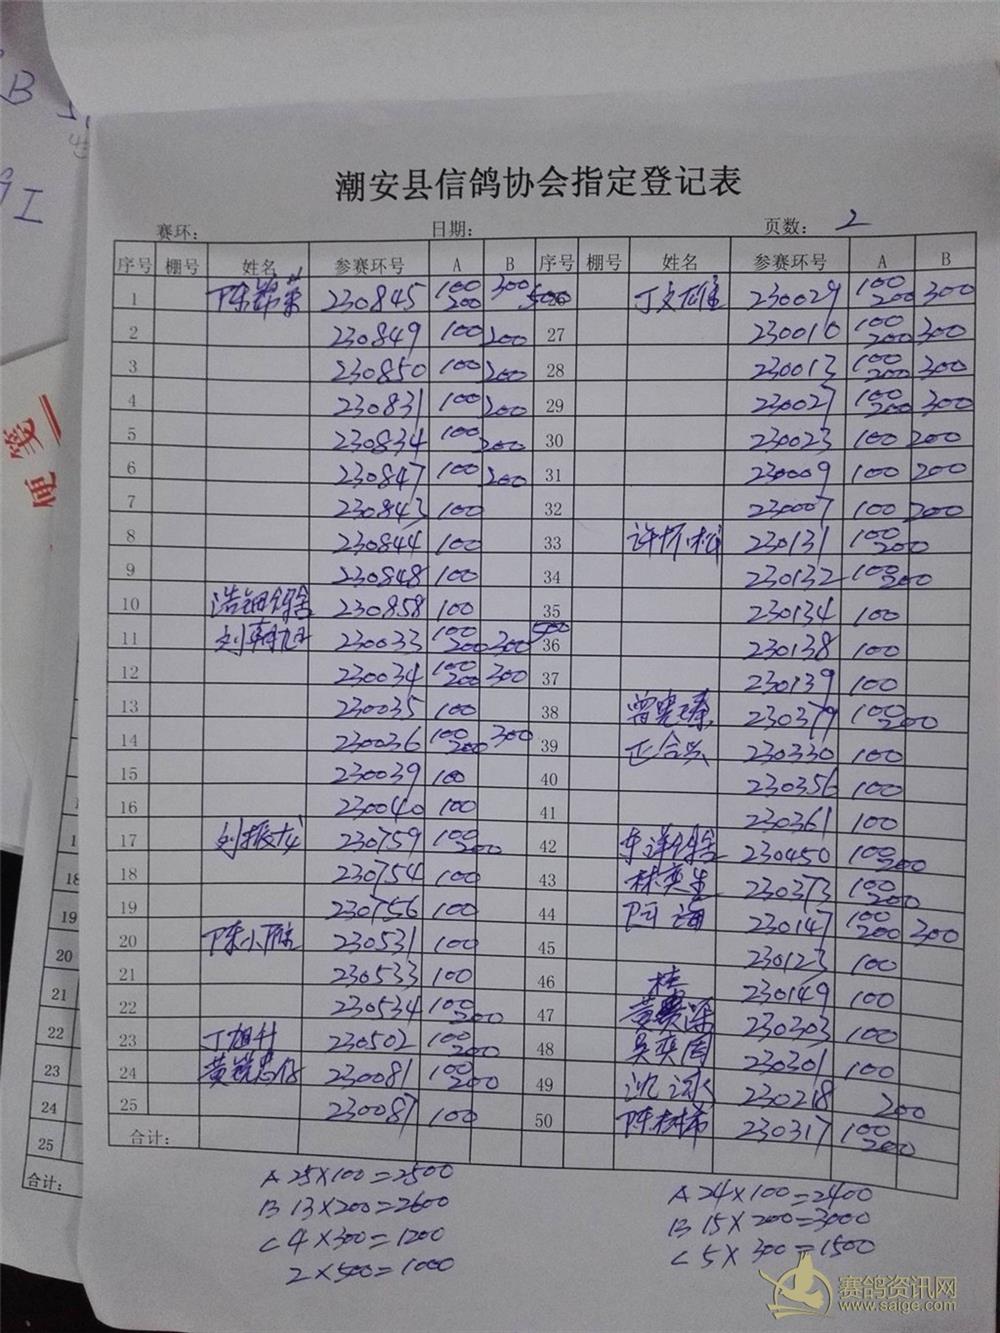 潮安县信鸽协会指定登记表
赛环： 日期： 页数：2
序号 棚号 姓名 参赛环号 A B 序号 棚号 姓名 参赛环号 A B
1 230845 100 200 300 500 26 丁文雄 230029 100 200 300
2 230849 100 200 27 230010 100 200 300
3 230850 100 200 28 230013 100 200 300
4 230831 100 200 29 230027 100 200 300
5 230834 100 200 30 230023 100 200
6 230847 100 200 31 230009 100 200
7 230843 100 32 230007 100 200
8 230844 100 33 许怀彬 230131 100 200
9 230848 100 34 230132 100 200
10 浩钿鸽舍 230858 100 35 230134 100
11 刘朝旭 230033 100 200 300 500 36 230138 100
12 230034 100 200 300 37 230139 100
13 230035 100 38 230379 100 200
14 230036 100 200 300 39 正合兴 230330 100
15 230039 100 40 230356 100
16 230040 100 41 230361 100
17 刘振龙 230759 100 200 42 鸽舍 230450 100 200
18 230754 100 43 林奕生 230373 100 200
19 230756 100 44 阿海 230147 100 200 300
20 陈小 230531 100 45 230123 100
21 230533 100 46 桂 230149 100
22 230534 100 200 47 黄 深 230303 100
23 丁旭升 230502 100 200 48 吴奕周 230301 100
24 黄 230081 100 200 49 沈 230218 200
25 230087 100 50 陈树 230317 100 200
合计：
A 25×100=2500
B 13×200=2600
C 4×300=1200
2×500=1000
A 24×100=2400
B 15×200=3000
C 5×300=1500
18
19
20
21
22
23
24
25
合计：
便笺
B
赛鸽资讯网
www.saige.com